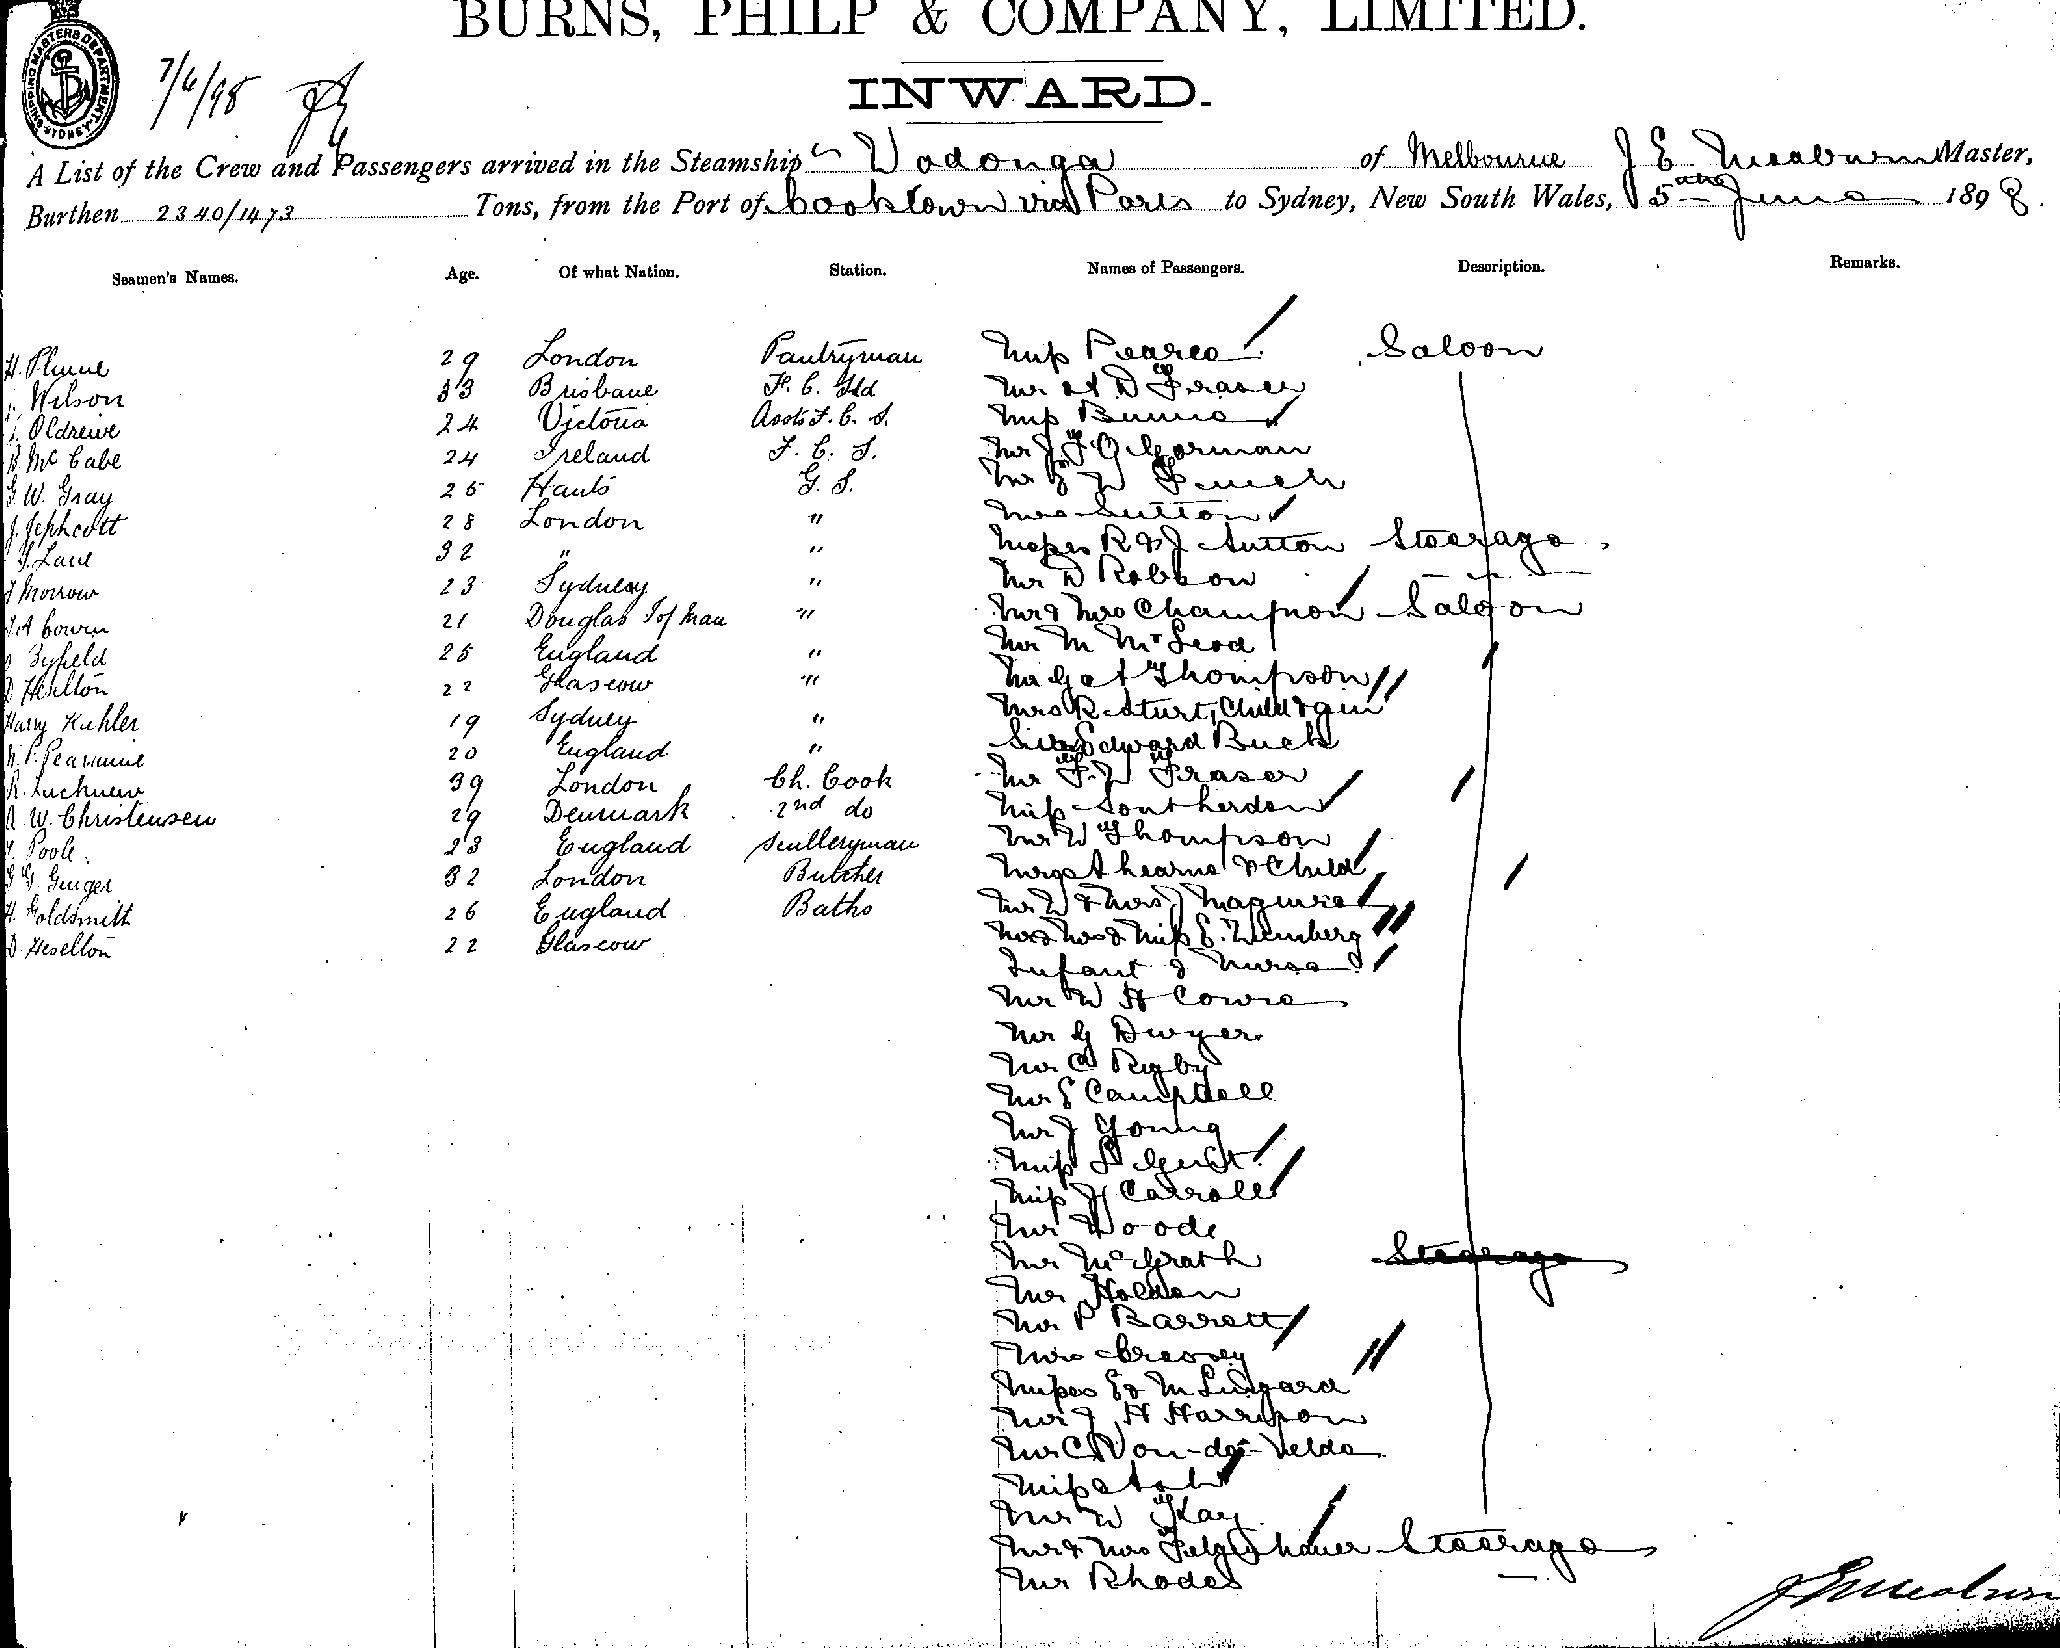 BURNS, PHILP & COMPANY, LIMITED.
SHIPPING MASTERS DEPARTMENT SYDNEY
7/6/98
INWARD.
A List of the Crew and Passengers arrived in the Steamship Wodonga of Melbourne J E Meaburn Master,
Burthen 2340/1473 Tons, from the Port of Cooktown via Ports to Sydney, New South Wales, 5th June 1898.
Seamen's Names. Age. Of what Nation. Station. Names of Passengers. Description. Remarks.
H. Plume 29 London Pantryman Miss Pearce Saloon
Wilson 33 Brisbane F. C. Std Mr A D Fraser
Oldreive 24 Victoria Asst F. C. S. Miss Bunne
McCabe 24 Ireland F. C. S. Mr J F O'Gorman
G W. Gray 25 Hants G. S. Mr E W Finch
J. Jephcott 28 London " Mrs Sutton
Lane 32 " " Misses R & J Sutton Steerage
Morrow 23 Sydney " Mr D Robson
Cowen 21 Douglas I of Man " Mr & Mrs Champion Saloon
Byfeld 25 England " Mr M McLeod
D Heselton 22 Glascow " Mr G A Thompson
Harry Kuhler 19 Sydney " Mrs R Sturt, Child &
Pearmine 20 England " Sir Edward Buck
R. Luchnew 39 London Ch. Cook Mr F. W Fraser
W. Christensen 29 Denmark 2nd do Miss Southerdon
Poole 23 England Sculleryman Mr W Thompson
Ginger 32 London Butcher Mrs Ahearne & Child
H. Goldsmith 26 England Baths Mr W & Mrs Maguire
D. Heselton 22 Glascow Mr & Mrs & Miss E. Weinberg
Infant & Nurse
Mr W H Cowie
Mr G Dwyer
Mr C Rigby
Mr E Campbell
Mr J Young
Miss Gust
Miss H Carroll
Mr Woods
Mr McGrath Steerage
Mr Holden
Mr P Barrett
Mrs Creasey
Misses E & M Lingard
Mr J H Harrison
Mr C Von-de-Velde
Miss
Mr W Kay
Mr & Mrs Felgenhauer Steerage
Mr Rhodes
J E Meaburn